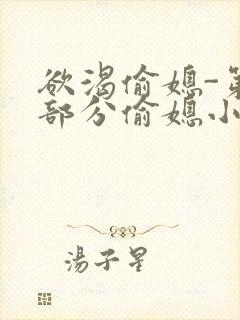 欲渴偷媳-第
部分偷媳小
湯子星